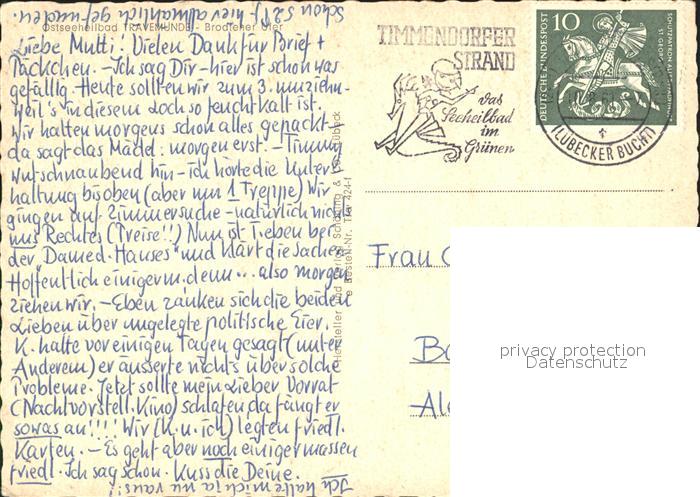 schon 52 Pf hier allmählich gefunden.
Ostseeheilbad TRAVEMÜNDE - Brodtener Ufer
Liebe Mutti! Vielen Dank für Brief +
Päckchen. - Ich sag Dir - hier ist schon was
gefällig. Heute sollten wir zum 3. umziehn -
weil's in diesem Loch so feucht kalt ist.
Wir halten morgens schon alles gepackt -
da sagt das Mädel: morgen erst. - Timmy
wutschnaubend hin - ich hörte die Unter
haltung bis oben (aber nur 1 Treppe) Wir
gingen auf Zimmersuche - natürlich nichts
Rechtes (Preise!!) Nun ist T. eben bei
der „Dame d. Hauses“ und klärt die Sache.
Hoffentlich einigerm. denn ... also morgen
ziehen wir. - Eben zanken sich die beiden
Lieben über ungelegte politische Eier.
K. hatte vor einigen Tagen gesagt (unter
Anderem) er äusserte nichts über solche
Probleme. Jetzt sollte mein Lieber Vorrat
(Nachtvorstell. Kino) schlafen da fängt er
sowas an!!!! Wir (K. u. ich) legten friedl.
Karten. - Es geht aber noch einigermassen
friedl. Ich sag schon. Kuss die Deine.
Ich halte mich ja nur raus!
Hersteller und Verlag Schöning & Co., Lübeck
Bestell-Nr. Trav 424-1
TIMMENDORFER
STRAND
das
Seeheilbad
im
Grünen
DEUTSCHE BUNDESPOST
10
SCHUTZPATRON DER PFADFINDER
ST. GEORG
(LÜBECKER BUCHT)
Frau
privacy protection
Datenschutz